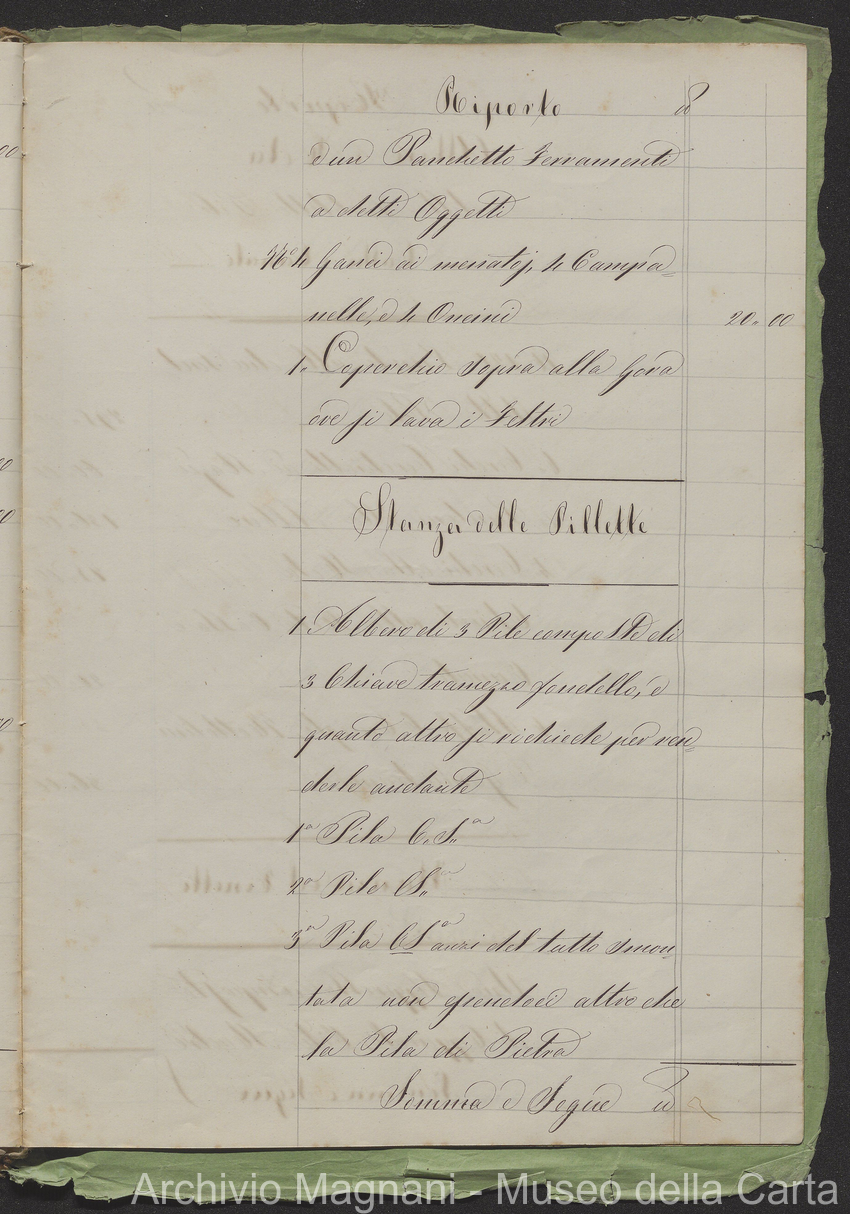 Riporto
e un Panchetto Ferramenti
a detti Oggetti
N.º 4 Ganci ai menatoj, 4 Campa=
nelle, e 4 Oncini 20.. 00
1. Coperchio sopra alla Gora
ove si lava i Feltri
Stanza delle Pillette
1. Albero di 3 Pile composte di
3 Chiave tramezzo fondello, e
quanto altro si richiede per ren=
derle andante
1ª Pila C. S.ª
2ª Pila C S.ª
3ª Pila C S.ª anzi del tutto smon=
tata non essendoci altro che
la Pila di Pietra
Somma e Segue
Archivio Magnani - Museo della Carta